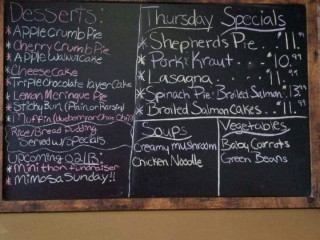 Desserts:
* Apple Crumb Pie
* Cherry Crumb Pie
* Apple Walnut Cake
* Cheese Cake
* Triple Chocolate Layer Cake
* Lemon Meringue Pie
* Sticky Bun (Plain or Raisin)
* Muffin
* Rice/Bread Pudding
Served w/ Specials
Upcoming @ 2113:
* Mini thon fundraiser
* Mimosa Sunday!!
Thursday Specials
* Shepherd's Pie.. $11.99
* Pork & Kraut. $10.99
* Lasagna.. $11.99
* Spinach Pie & Broiled Salmon $13.99
* Broiled Salmon Cakes.. $11.
Soups
Creamy mushroom
Chicken Noodle
Vegetables
Baby Carrots
Green Beans